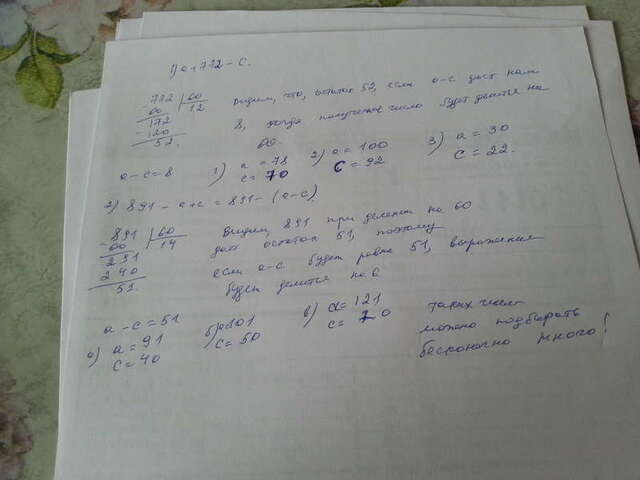 1) a + 772 - c.
-772 | 60
60 | 12
172
-120
52.
видим, что, остаток 52, если a-c даст нам
8, тогда полученное число будет делится на
60.
a - c = 8
1) a = 78
c = 70
2) a = 100
c = 92
3) a = 30
c = 22.
2) 891 - a + c = 891 - (a-c)
-891 | 60
60 | 14
291
240
51.
Видим, 891 при делении на 60
даст остаток 51, поэтому
если a-c будет равно 51, выражение
будет делится на 6
a - c = 51
а) a = 91
c = 40
б) a=101
c = 50
в) a = 121
c = 70
таких чисел
можно подбирать
бесконечно много!